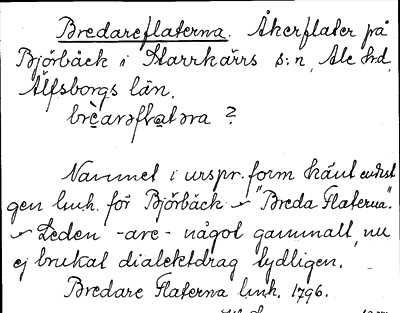 Bredareflaterna. Åkerflater på
Björbäck i Starrkärrs s:n, Ale hd,
Älfsborgs län.
brèarəflatəra ?
Namnet i urspr. form känt endast
gen lmh. för Björbäck - "Breda Flaterna".
- Leden -are- något gammalt, nu
ej brukat dialektdrag tydligen.
Bredare Flaterna lmh. 1796.